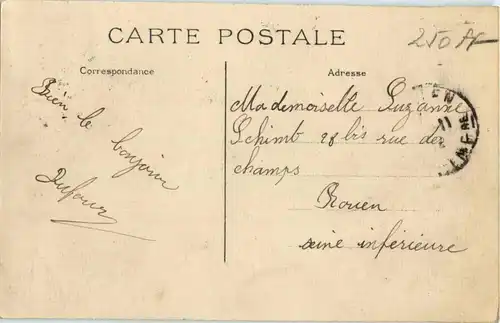 CARTE POSTALE
Correspondance
Adresse
Bien le
bonjour
Dufour
Mademoiselle Suzanne
Schimb 28 bis rue des
champs
Rouen
seine inférieure